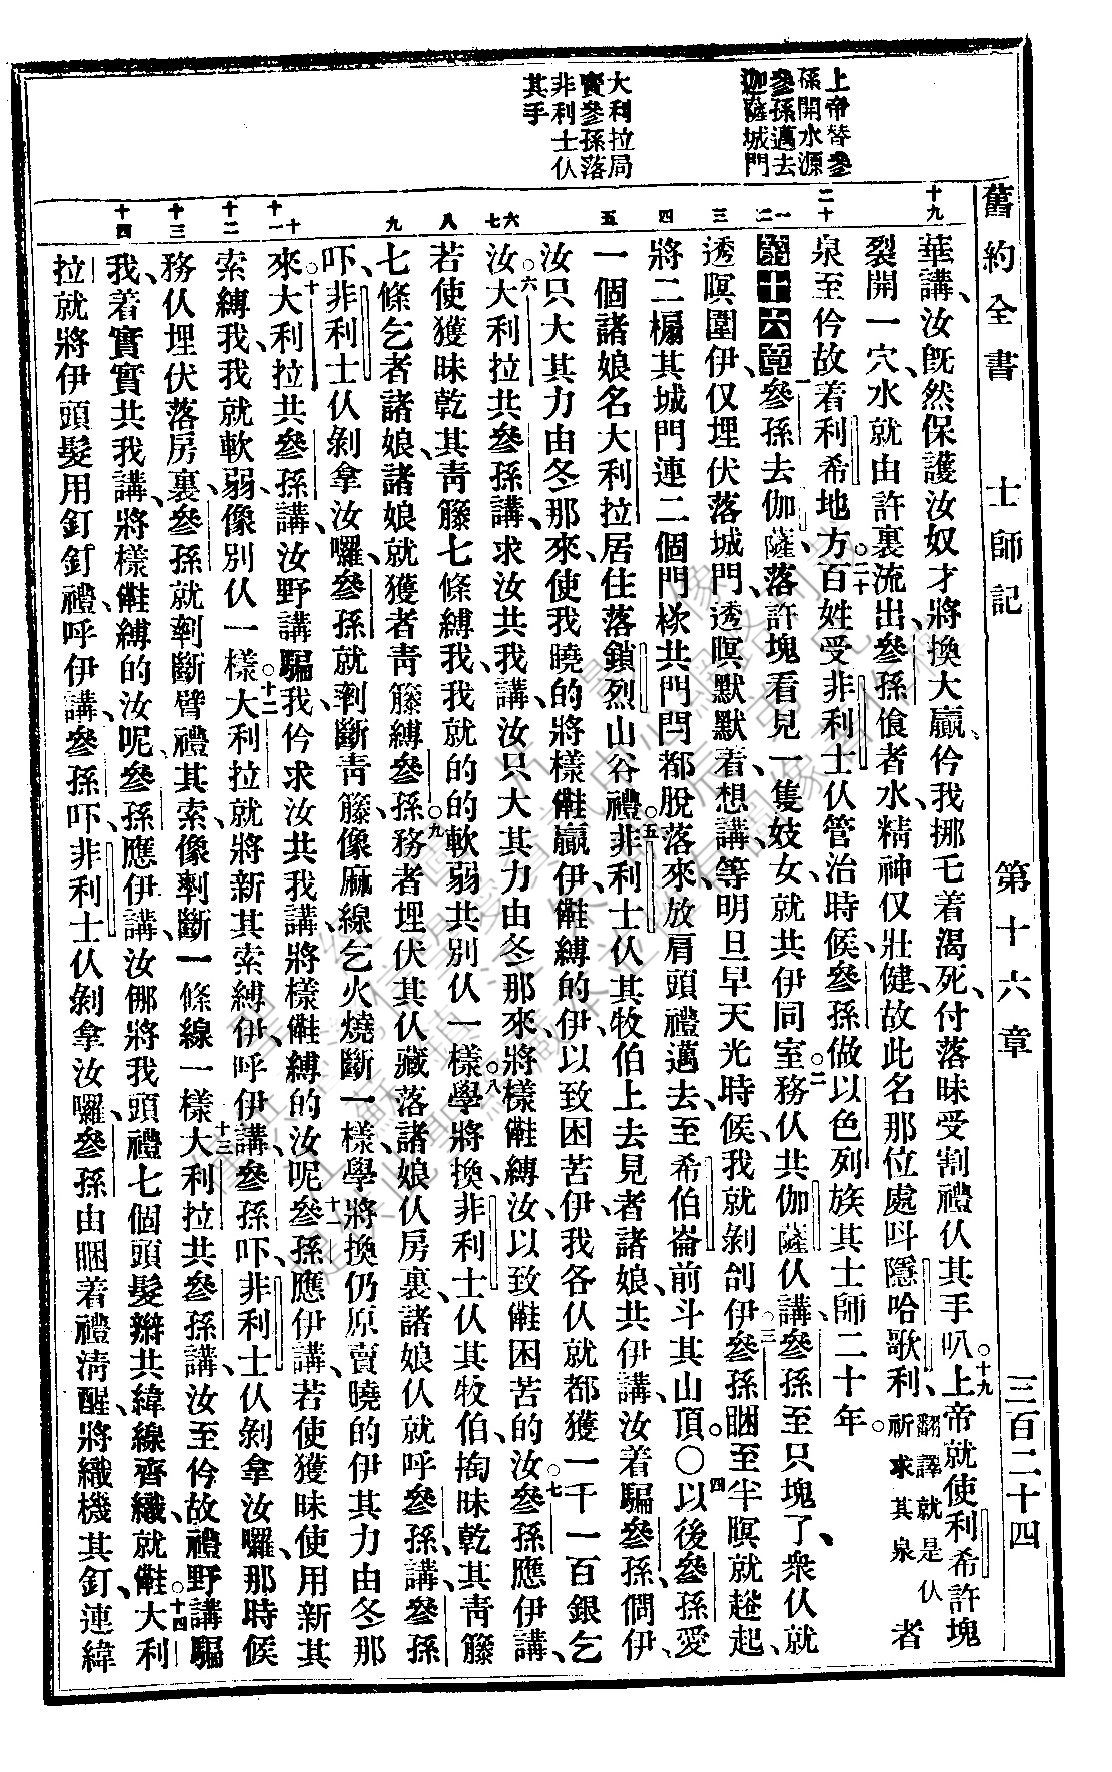 舊約全書 士師記 第十六章 三百二十四
上帝替參
孫開水源
參孫邁去
迦薩城門
大利拉局
賣參孫落
非利士仫
其手
華講、汝既然保護汝奴才、將換大贏、仱我挪乇着渴死、付落昧受割禮仫其手叭。十九上帝就使利希許塊
裂開一穴、水就由許裏流出、參孫飡者水、精神仅壯健、故此名那位處呌隱哈歌利、翻譯就是仫祈求其泉。者
泉至仱故着利希地方。二十百姓受非利士仫管治時候、參孫做以色列族其士師二十年
第十六章 一參孫去伽薩、落許塊看見一隻妓女、就共伊同室。二務仫共伽薩仫講、參孫至只塊了、衆仫就
透暝圍伊、仅埋伏落城門、透暝默默着、想講、等明旦早天光時候、我就剝刣伊。三參孫睏至半暝、就趒起、
將二楄其城門、連二個門柣、共門閂、都脫落來、放肩頭禮邁去、至希伯崙前斗其山頂。〇四以後參孫愛
一個諸娘、名大利拉、居住落鎖烈山谷禮。五非利士仫其牧伯上去見者諸娘、共伊講、汝着騙參孫、僩伊
汝只大其力由冬那來、使我曉的將樣𠆧贏伊、𠆧縛的伊、以致困苦伊、我各仫就都獲一千一百銀乞
汝。六大利拉共參孫講、求汝共我講、汝只大其力由冬那來、將樣𠆧縛汝、以致𠆧困苦的汝。七參孫應伊講、
若使獲昧乾其靑籐七條縛我、我就的的軟弱、共別仫一樣。八學將換、非利士仫其牧伯、掏昧乾其靑籐
七條乞者諸娘、諸娘就獲者靑籐縛參孫。九務者埋伏其仫藏落諸娘仫房裏、諸娘仫就呼參孫講、參孫
吓、非利士仫剝拿汝囉、參孫就剢斷靑籐、像麻線乞火燒斷一樣、學將換仍原賣曉的伊其力由冬那
來。十大利拉共參孫講、汝野講騙我、仱求汝共我講、將樣𠆧縛的汝呢。十一參孫應伊講、若使獲昧使用新其
索縛我、我就軟弱、像別仫一樣。十二大利拉就將新其索縛伊、呼伊講、參孫吓、非利士仫剝拿汝囉、那時候
務仫埋伏落房裏、參孫就剢斷臂禮其索、像剢斷一條線一樣。十三大利拉共參孫講、汝至仱故禮野講騙
我、着實實共我講、將樣𠆧縛的汝呢、參孫應伊講、汝㑚將我頭禮七個頭髮辮、共緯線齊織、就𠆧。十四大利
拉就將伊頭髮用釘釘禮、呼伊講、參孫吓、非利士仫剝拿汝囉、參孫由睏着禮淸醒、將織機其釘、連緯